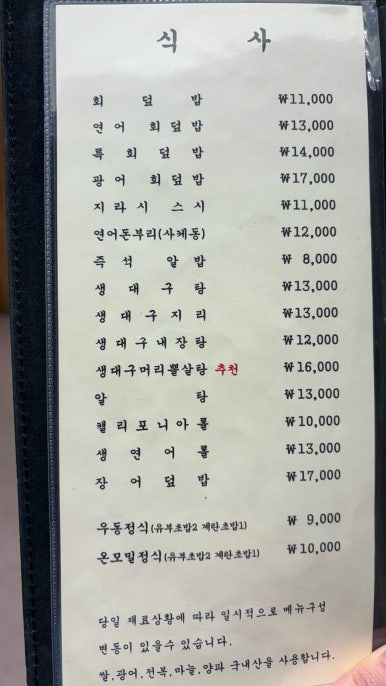 식 사
회 덮 밥 ₩11,000
연어 회덮밥 ₩13,000
특 회 덮 밥 ₩14,000
광어 회덮밥 ₩17,000
지라시 스시 ₩11,000
연어돈부리(사케동) ₩12,000
즉 석 알 밥 ₩ 8,000
생 대 구 탕 ₩13,000
생 대 구 지 리 ₩13,000
생대구내장탕 ₩12,000
생대구머리뽈살탕 추천 ₩16,000
알 탕 ₩13,000
캘리포니아롤 ₩10,000
생 연 어 롤 ₩13,000
장 어 덮 밥 ₩17,000
우동정식(유부초밥2 계란초밥1) ₩ 9,000
온모밀정식(유부초밥2 계란초밥1) ₩10,000
당일 재료상황에 따라 일시적으로 메뉴구성
변동이 있을수 있습니다.
쌀,광어,전복,마늘,양파 국내산을 사용합니다.